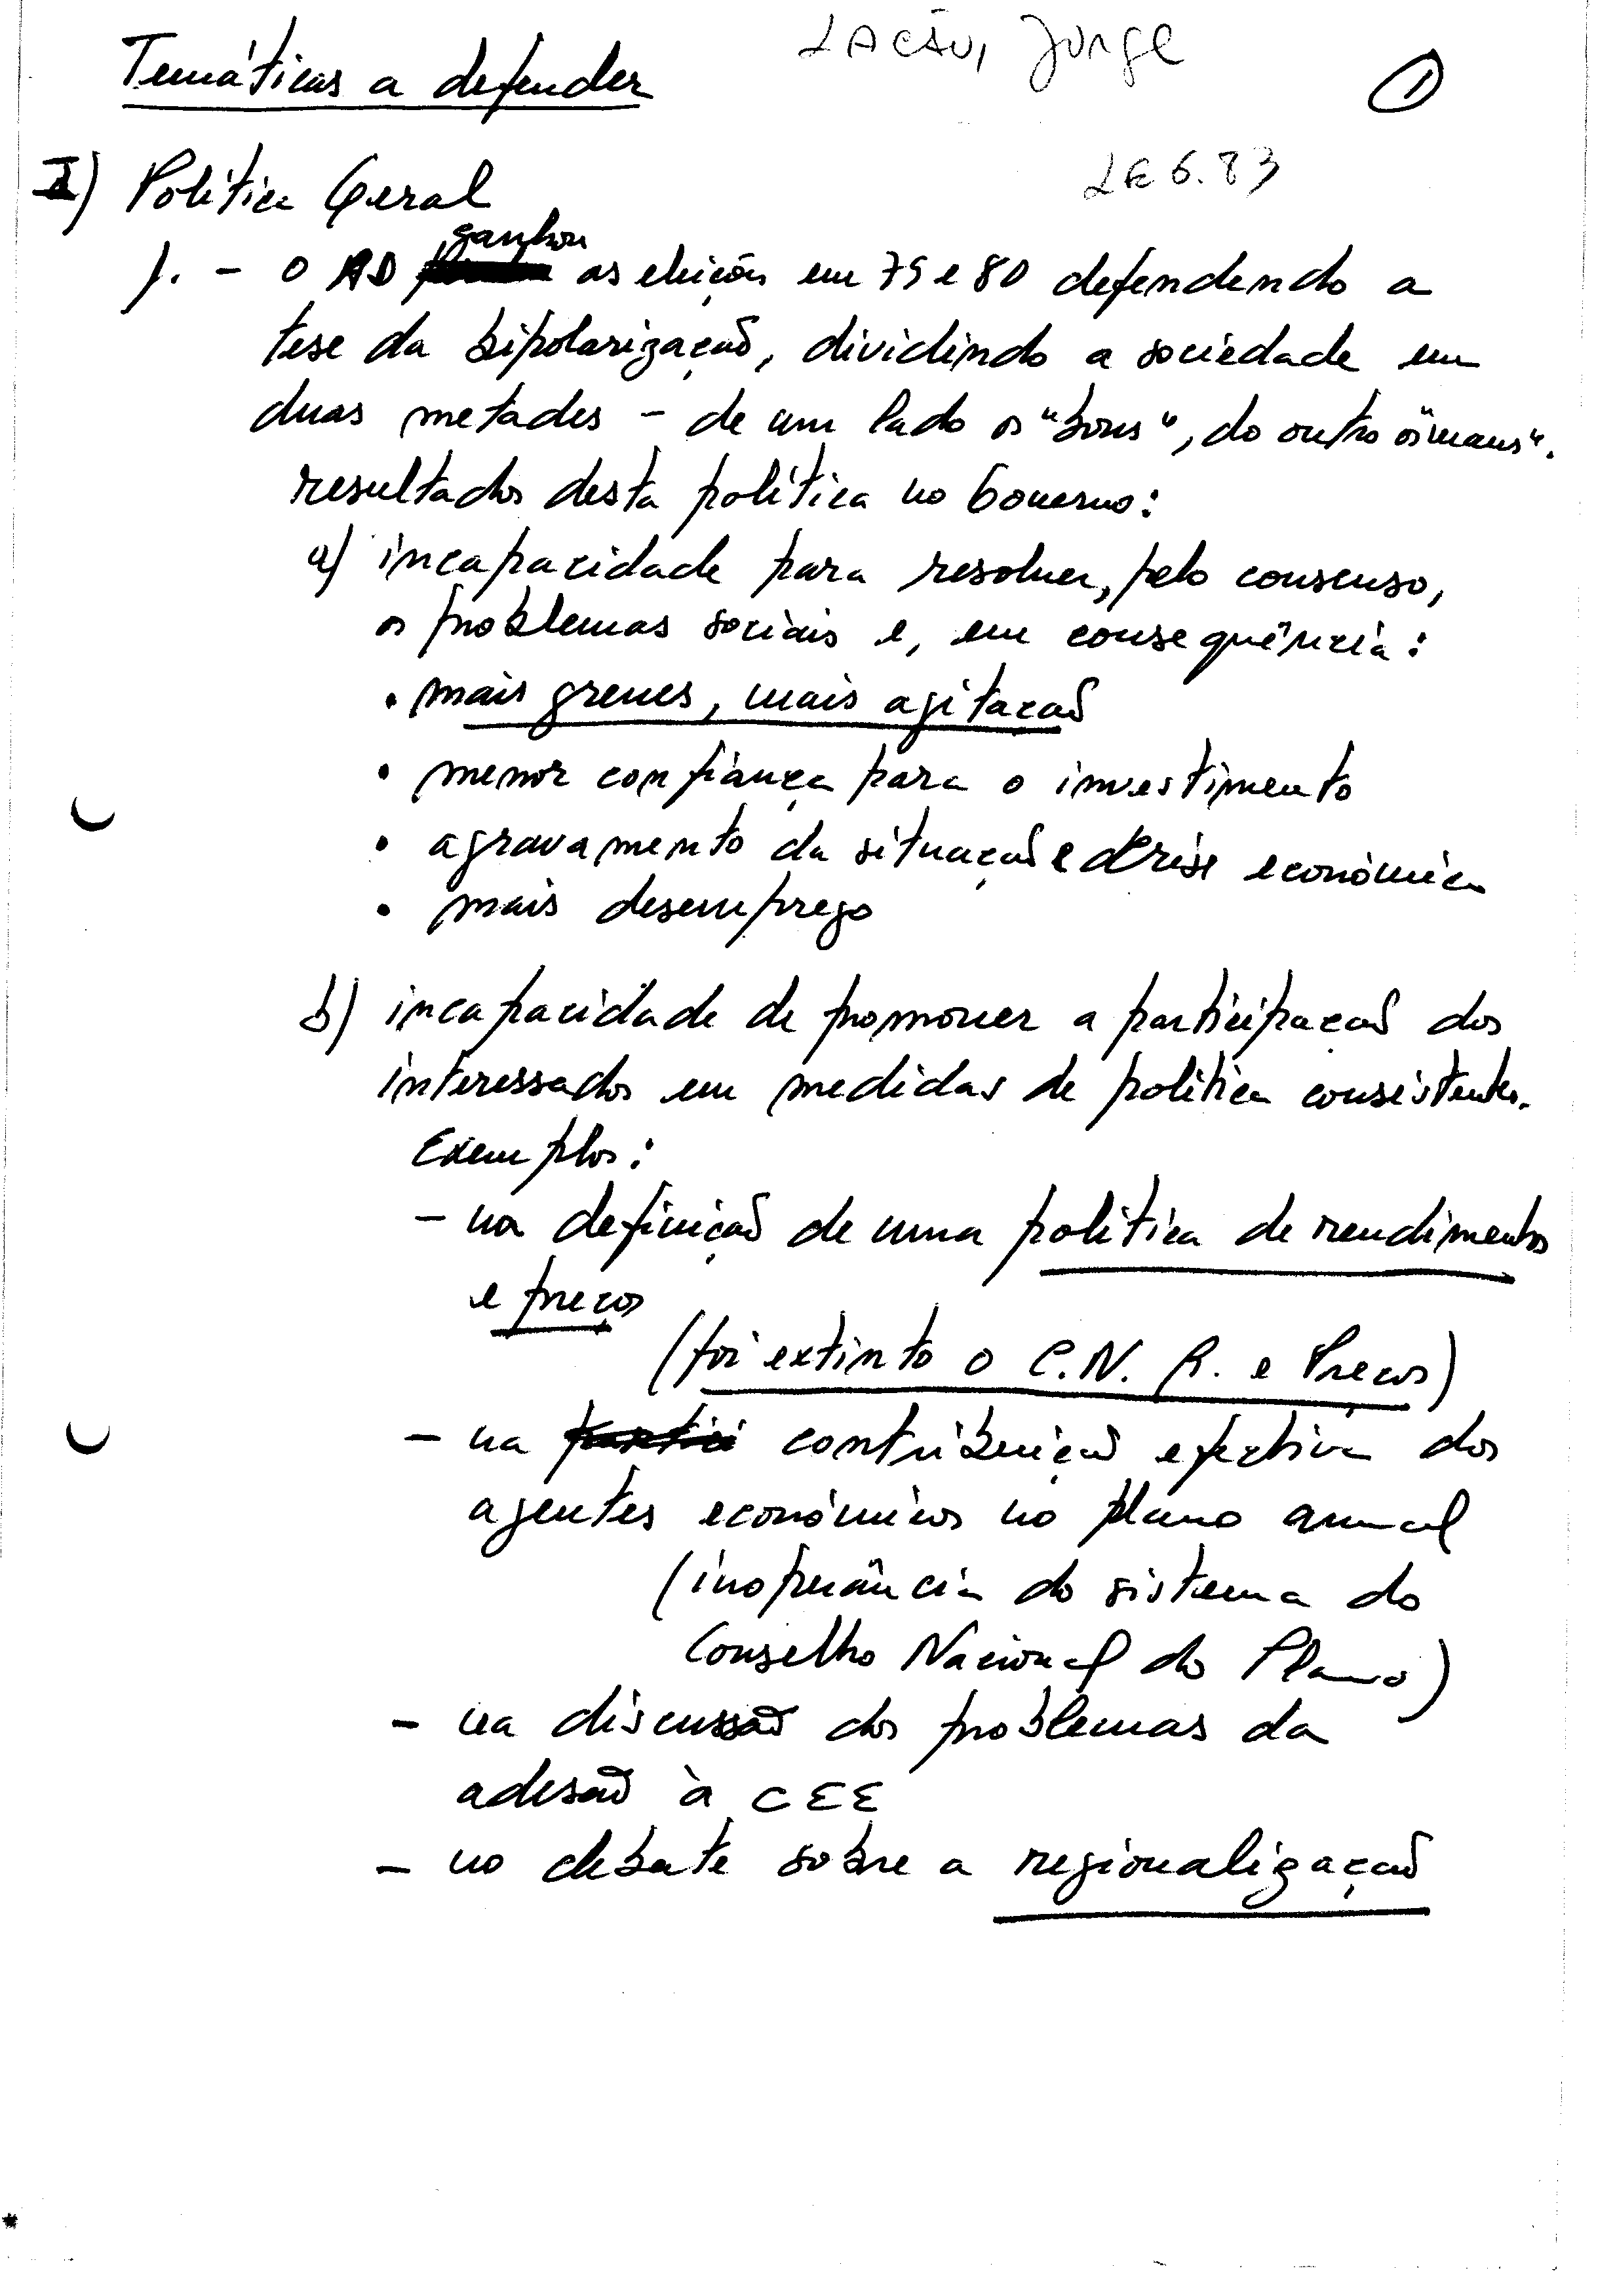 LACÃO, Jorge
Temáticas a defender
1
I) Política Geral
LE 6.83
1. - O AD ganhou as eleições em 79 e 80 defendendo a
tese da bipolarização, dividindo a sociedade em
duas metades - de um lado os "bons", do outro os "maus".
resultados desta política no Governo:
a) incapacidade para resolver, pelo consenso,
os problemas sociais e, em consequência:
• mais greves, mais agitação
• menor confiança para o investimento
• agravamento da situação e crise económica
• mais desemprego
b) incapacidade de promover a participação dos
interessados em medidas de política consistentes.
Exemplos:
- na definição de uma política de rendimentos
e preços
(foi extinto o C.N. R. e Preços)
- na partici contribuição efectiva dos
agentes económicos no plano anual
(inoperância do sistema do
Conselho Nacional do Plano)
- na discussão dos problemas da
adesão à CEE
- no debate sobre a regionalização